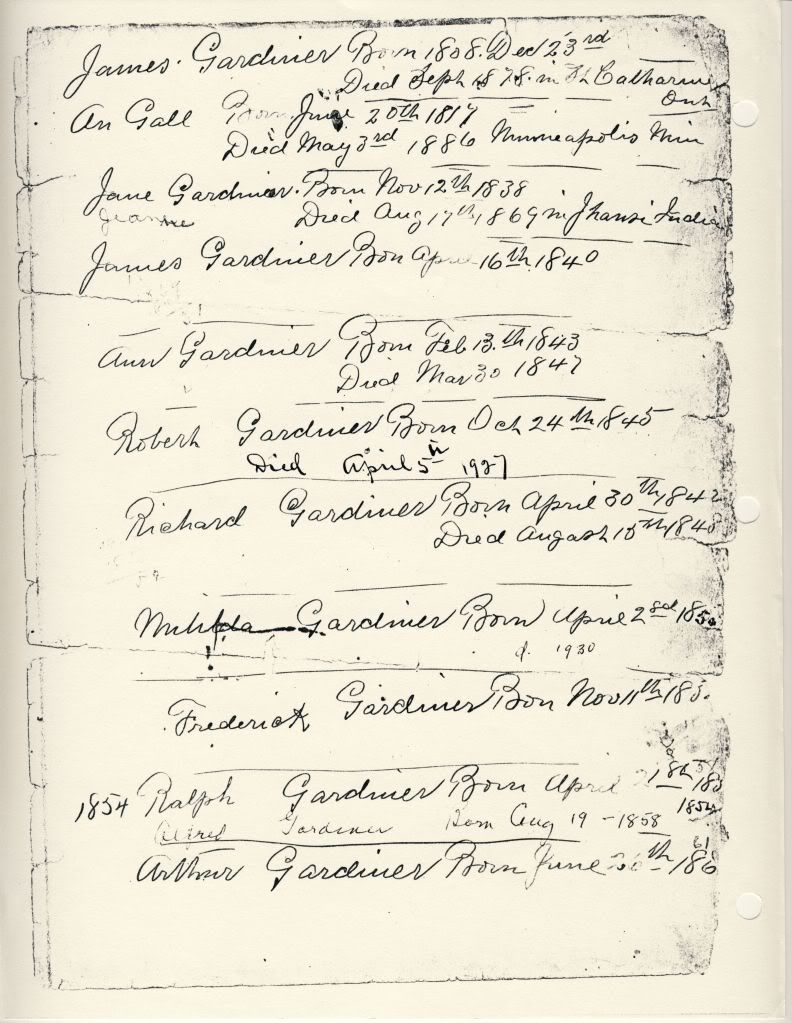 James Gardiner Born 1808. Dec 23rd
Died Seph 1878. in St Catharine
Onh
An Gall Born June 20th 1817
Died May 3rd 1886 Minneapolis Min
Jane Gardiner. Born Nov 12th 1838
Jeanne Died Aug 17th 1869 in Jhansi India
James Gardiner Bon April 16th 1840
Ann Gardiner Born Feb 13.th 1843
Died Mar 30 1847
Robert Gardiner Born Och 24th 1845
Died April 5th 1927
Richard Gardiner Born April 30th
Died Augush 15th 1848
Gardiner Born April
d. 1930
Frederick Gardiner Bon Nov 11th
1854 Ralph Gardiner Born April
1854
Alfred Gardiner Born Aug 19 - 1858
61
Arthur Gardiner Born June 186